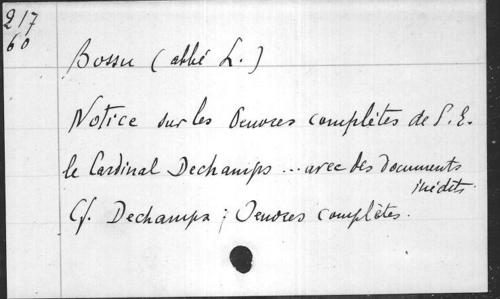 217
60
Bossu (abbé L.)
Notice sur les Oeuvres complètes de S. E.
le Cardinal Dechamps ... avec des documents
inédits.
Cf. Dechamps ; Oeuvres complètes.